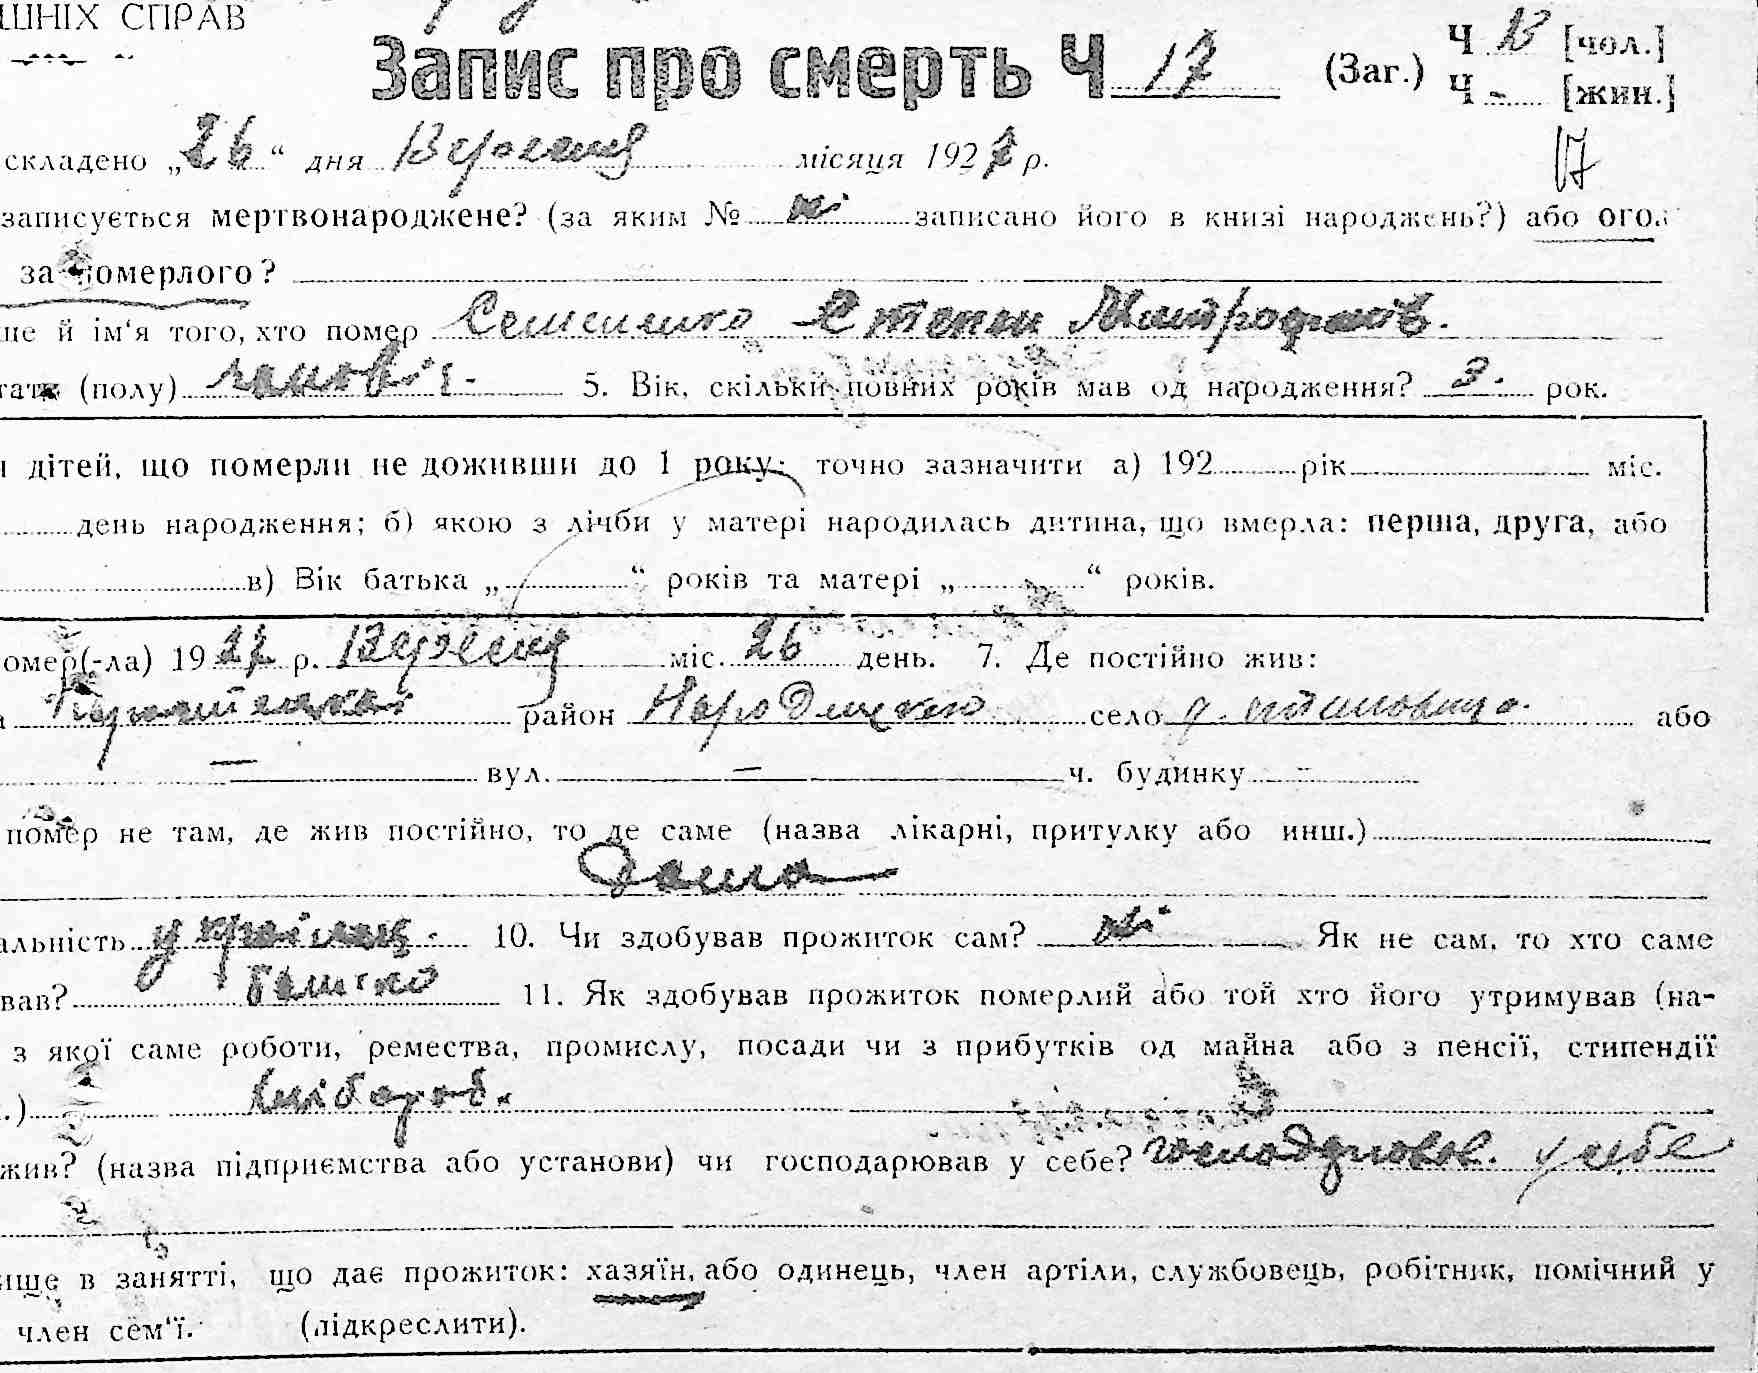 ШНІХ СПРАВ
Запис про смерть Ч 17 (Заг.) Ч 13 [чол.]
Ч - [жин.]
складено „26“ дня Вересня місяця 1927 р. 17
записується мертвонароджене? (за яким № ні записано його в книзі народжень?) або огол
за померлого?
ше й ім‘я того, хто помер Семенико Степан Митрофанов.
тати (полу) чоловіч. 5. Вік, скільки повних років мав од народження? 3. рок.
дітей, що померли не доживши до 1 року: точно зазначити а) 192 рік міс.
день народження; б) якою з лічби у матері народилась дитина, що вмерла: перша, друга, або
в) Вік батька „ “ років та матері „ “ років.
омер(-ла) 1927 р. Вересня міс. 26 день. 7. Де постійно жив:
район Народицького село або
— вул. — ч. будинку -
помер не там, де жив постійно, то де саме (назва лікарні, притулку або инш.)
Дома
альність українец. 10. Чи здобував прожиток сам? ні Як не сам, то хто саме
вав? батько 11. Як здобував прожиток померлий або той хто його утримував (на-
з якої саме роботи, ремества, промислу, посади чи з прибутків од майна або з пенсії, стипендії
.) хлібороб.
жив? (назва підприємства або установи) чи господарював у себе? господарював. у себе
ище в занятті, що дає прожиток: хазяїн, або одинець, член артіли, службовець, робітник, помічний у
член сем‘ї. (підкреслити).